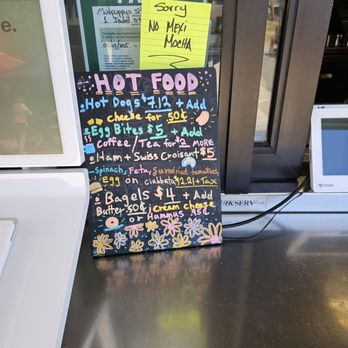 Sorry
NO MEXI
MOCHA
HOT FOOD
Hot Dogs $7.12 + Add
cheese for 50¢
Egg Bites $5 + Add
Coffee/Tea for $2 MORE
Ham + Swiss Croisant $5
Spinach, Feta, Sundried tomatoes,
Egg on ciabatta $2.21 + Tax
Bagels $4 + Add
Butter 50¢ | cream cheese
or Hummus 95¢